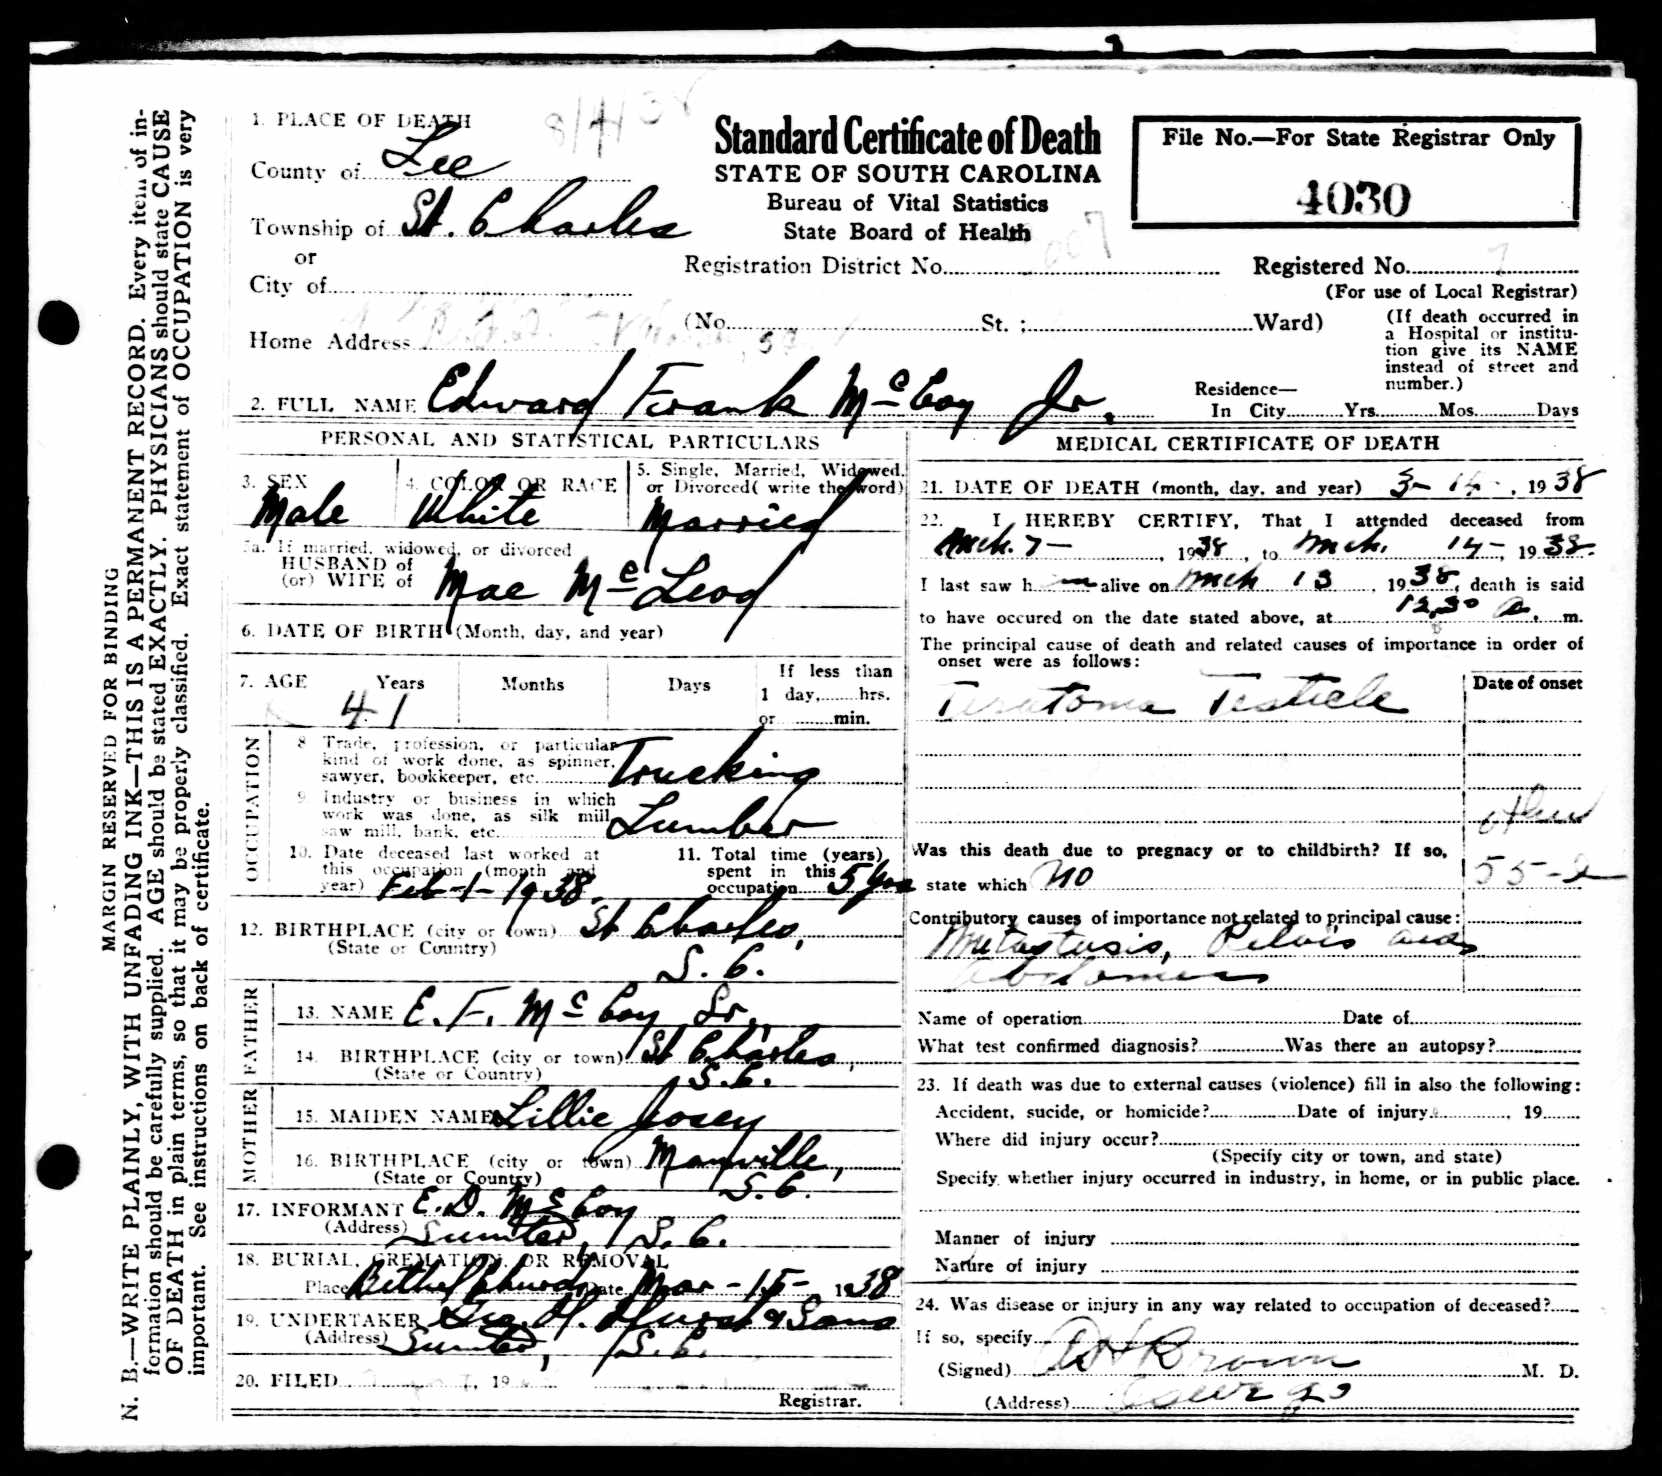 MARGIN RESERVED FOR BINDING
N. B.—WRITE PLAINLY, WITH UNFADING INK—THIS IS A PERMANENT RECORD. Every item of in-
formation should be carefully supplied. AGE should be stated EXACTLY. PHYSICIANS should state CAUSE
OF DEATH in plain terms, so that it may be properly classified. Exact statement of OCCUPATION is very
important. See instructions on back of certificate.
1. PLACE OF DEATH
8/4/38
County of Lee
Township of St. Charles
or
City of
Home Address
Standard Certificate of Death
STATE OF SOUTH CAROLINA
Bureau of Vital Statistics
State Board of Health
File No.—For State Registrar Only
4030
Registration District No. 007
Registered No. 7
(For use of Local Registrar)
(No. St. ; Ward)
(If death occurred in
a Hospital or institu-
tion give its NAME
instead of street and
number.)
2. FULL NAME Edward Frank McCoy Jr.
Residence—
In City Yrs. Mos. Days
PERSONAL AND STATISTICAL PARTICULARS
3. SEX
Male
4. COLOR OR RACE
White
5. Single, Married, Widowed,
or Divorced( write the word)
Married
5a. If married, widowed, or divorced
HUSBAND of
(or) WIFE of
Mae McLeod
6. DATE OF BIRTH (Month, day, and year)
7. AGE Years Months Days
41
If less than
1 day, hrs.
or min.
OCCUPATION
8 Trade, profession, or particular
kind of work done, as spinner,
sawyer, bookkeeper, etc. Trucking
9 Industry or business in which
work was done, as silk mill,
saw mill, bank, etc. Lumber
10. Date deceased last worked at
this occupation (month and
year) Feb-1-1938.
11. Total time (years)
spent in this
occupation 5 yrs
12. BIRTHPLACE (city or town) St Charles,
(State or Country) S. C.
FATHER
13. NAME E. F. McCoy Sr.,
14. BIRTHPLACE (city or town) St Charles,
(State or Country) S. C.
MOTHER
15. MAIDEN NAME Lillie Josey
16. BIRTHPLACE (city or town) Manville,
(State or Country) S. C.
17. INFORMANT E. D. McCoy
(Address) Sumter, S. C.
18. BURIAL, CREMATION, OR REMOVAL
Place Bethel Church Date Mar-15- 1938
19. UNDERTAKER Geo. H. Hurst & Sons
(Address) Sumter, S. C.
20. FILED , 19
Registrar.
MEDICAL CERTIFICATE OF DEATH
21. DATE OF DEATH (month, day, and year) 3- 14- , 19 38
22. I HEREBY CERTIFY, That I attended deceased from
Mch. 7- , 1938, to Mch. 14-, 1938.
I last saw him alive on Mch 13 , 1938, death is said
to have occured on the date stated above, at 12,30 a. m.
The principal cause of death and related causes of importance in order of
onset were as follows:
Date of onset
Teratoma Testicle
other
55-2
Was this death due to pregnacy or to childbirth? If so,
state which No
Contributory causes of importance not related to principal cause:
Metastasis, Pelvis and
abdomen
Name of operation Date of
What test confirmed diagnosis? Was there an autopsy?
23. If death was due to external causes (violence) fill in also the following:
Accident, sucide, or homicide? Date of injury , 19
Where did injury occur?
(Specify city or town, and state)
Specify whether injury occurred in industry, in home, or in public place.
Manner of injury
Nature of injury
24. Was disease or injury in any way related to occupation of deceased?
If so, specify
(Signed) Brown M. D.
(Address)